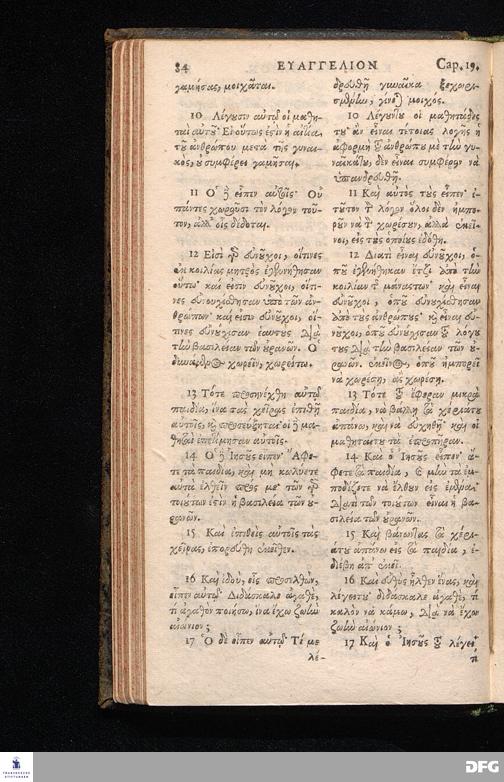 34 ΕΥΑΓΓΕΛΙΟΝ Cap. 19.
γαμήσας, μοιχᾶται.
10 Λέγουσιν αὐτῷ οἱ μαθη-
ταὶ αὐτοῦ· Εἰ οὕτως ἐστὶν ἡ αἰτία
τοῦ ἀνθρώπου μετὰ τῆς γυναι-
κὸς, οὐ συμφέρει γαμῆσαι.
11 Ὁ δὲ εἶπεν αὐτοῖς· Οὐ
πάντες χωροῦσι τὸν λόγον τοῦ-
τον, ἀλλ' οἷς δέδοται.
12 Εἰσὶ γὰρ εὐνοῦχοι, οἵτινες
ἐκ κοιλίας μητρὸς ἐγεννήθησαν
οὕτω· καὶ εἰσιν εὐνοῦχοι, οἵτι-
νες εὐνουχίσθησαν ὑπὸ τῶν ἀν-
θρώπων· καὶ εἰσιν εὐνοῦχοι, οἵ-
τινες εὐνούχισαν ἑαυτοὺς διὰ
τὴν βασιλείαν τῶν οὐρανῶν. Ὁ
δυνάμενος χωρεῖν, χωρείτω.
13 Τότε προσηνέχθη αὐτῷ
παιδία, ἵνα τὰς χεῖρας ἐπιθῇ
αὐτοῖς, καὶ προσεύξηται· οἱ δὲ μα-
θηταὶ ἐπετίμησαν αὐτοῖς.
14 Ὁ δὲ Ἰησοῦς εἶπεν· Ἄφε-
τε τὰ παιδία, καὶ μὴ κωλύετε
αὐτὰ ἐλθεῖν πρός με· τῶν γὰρ
τοιούτων ἐστὶν ἡ βασιλεία τῶν οὐ-
ρανῶν.
15 Καὶ ἐπιθεὶς αὐτοῖς τὰς
χεῖρας, ἐπορεύθη ἐκεῖθεν.
16 Καὶ ἰδοὺ, εἷς προσελθὼν,
εἶπεν αὐτῷ· Διδάσκαλε ἀγαθὲ,
τί ἀγαθὸν ποιήσω, ἵνα ἔχω ζωὴν
αἰώνιον;
17 Ὁ δὲ εἶπεν αὐτῷ· Τί με
λέ-
ὑπανδρευθῇ γυναῖκα ξεχωρι-
σμένην, γίνεται μοιχός.
10 Λέγουν του οἱ μαθητάδες
του· ἂν εἶναι τέτοιας λογῆς ἡ
ἀφορμὴ τοῦ ἀνθρώπου μὲ τὴν γυ-
ναῖκά του, δὲν εἶναι συμφέρον νὰ
ὑπανδρευθῇ.
11 Καὶ αὐτὸς τοὺς εἶπεν· ἐ-
τοῦτον τὸν λόγον ὅλοι δὲν ἠμπο-
ροῦν νὰ τὸν χωρέσουν, ἀλλὰ ἐκεῖ-
νοι, εἰς τοὺς ὁποίους ἐδόθη.
12 Διατὶ εἶναι εὐνοῦχοι, ὁ-
ποῦ ἐγεννήθηκαν ἔτζι ἀπὸ τὴν
κοιλίαν τῆς μάνας των· καὶ εἶναι
εὐνοῦχοι, ὁποῦ εὐνουχίσθησαν
ἀπὸ τοὺς ἀνθρώπους· καὶ εἶναι εὐ-
νοῦχοι, ὁποῦ εὐνούχισαν τοῦ λόγου
τους διὰ τὴν βασιλείαν τῶν οὐ-
ρανῶν. ἐκεῖνος, ὁποῦ ἠμπορεῖ
νὰ χωρέσῃ, ἂς χωρέσῃ.
13 Τότε τοῦ ἔφεραν μικρὰ
παιδία, νὰ βάλῃ τὰ χέριά του
ἀπάνω, καὶ νὰ εὐχηθῇ· καὶ οἱ
μαθηταί του τὰ ἐπιτίμησαν.
14 Καὶ ὁ Ἰησοῦς εἶπεν· ἀ-
φετε τὰ παιδία, καὶ μὴν τὰ ἐμ-
ποδίζετε νὰ ἔλθουν εἰς ἐμένα·
διατὶ τῶν τοιούτων εἶναι ἡ βα-
σιλεία τῶν οὐρανῶν.
15 Καὶ βάνωντας τὰ χέρι-
ά του ἀπάνω εἰς τὰ παιδία, ἐ-
διέβη ἀπ' ἐκεῖ.
16 Καὶ εὐθὺς ἦλθεν ἕνας, καὶ
λέγει του· διδάσκαλε ἀγαθὲ, τί
καλὸν νὰ κάμω, διὰ νὰ ἔχω
ζωὴν αἰώνιον;
17 Καὶ ὁ Ἰησοῦς τοῦ λέγει·
τί
FRANCKESCHE STIFTUNGEN
DFG